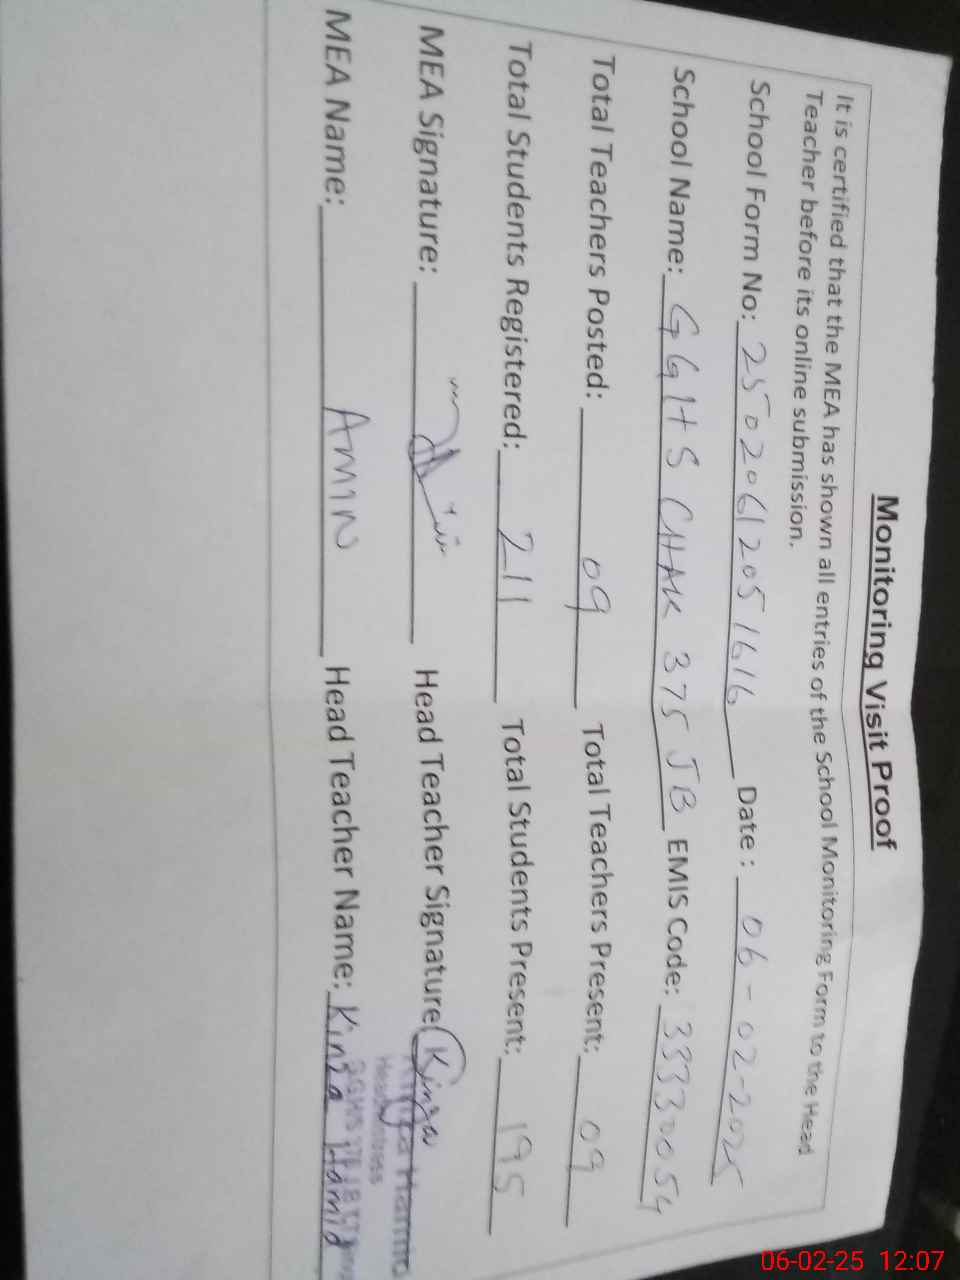 Monitoring Visit Proof
It is certified that the MEA has shown all entries of the School Monitoring Form to the Head
Teacher before its online submission.
School Form No: 2502061205 1616 Date : 06-02-2025
School Name: GGHS CHAK 375 JB EMIS Code: 33330054
Total Teachers Posted: 09 Total Teachers Present: 09
Total Students Registered: 211 Total Students Present: 195
MEA Signature: Head Teacher Signature Kinza
Kinza Hamid
Headmistress
MEA Name: AMIN Head Teacher Name: Kinza Hamid
06-02-25 12:07